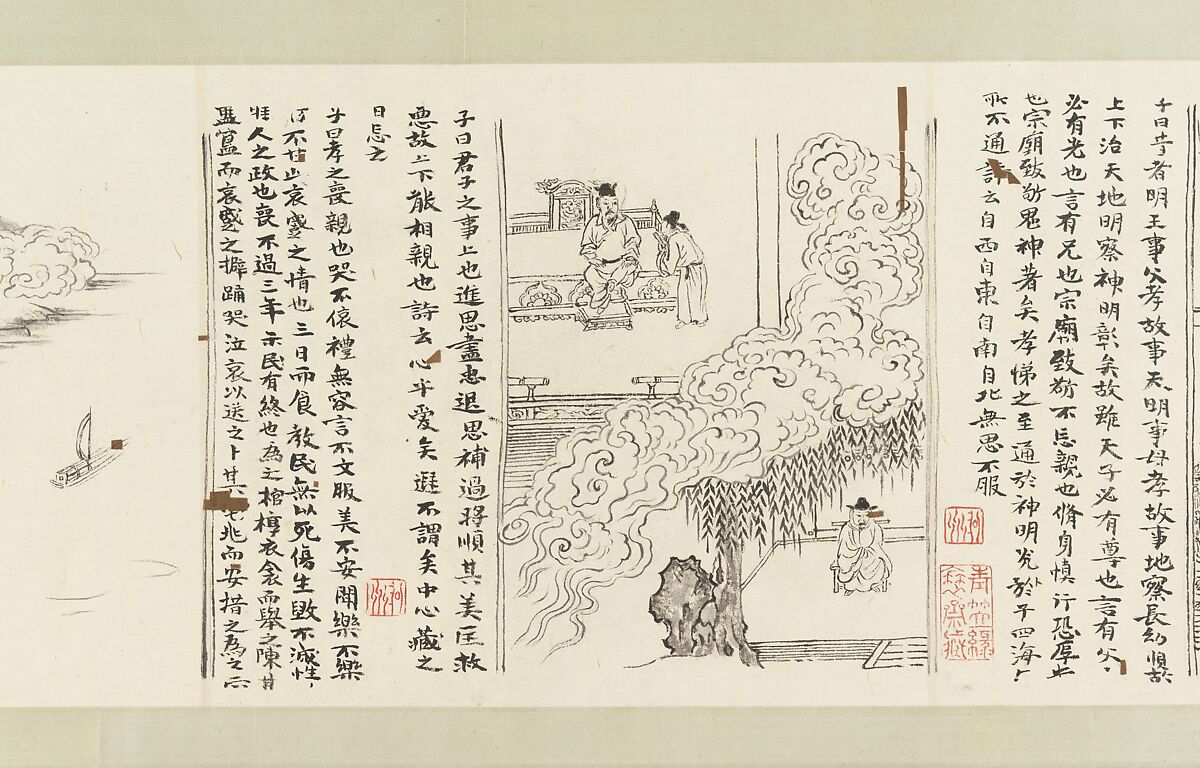 子曰昔者明王事父孝故事天明事母孝故事地察長幼順故
上下治天地明察神明彰矣故雖天子必有尊也言有父
必有先也言有兄也宗廟致敬不忘親也脩身慎行恐辱
也宗廟致敬鬼神著矣孝悌之至通於神明光於于四海
所不通詩云自西自東自南自北無思不服
子曰君子之事上也進思盡忠退思補過將順其美匡救
惡故上下能相親也詩云心乎愛矣遐不謂矣中心藏之
日忘之
子曰孝之喪親也哭不偯禮無容言不文服美不安聞樂不樂
不甘此哀慼之情也三日而食教民無以死傷生毀不滅性
人之政也喪不過三年示民有終也為之棺椁衣衾而舉之陳其
簠而哀慼之擗踊哭泣哀以送之卜其兆而安措之為之